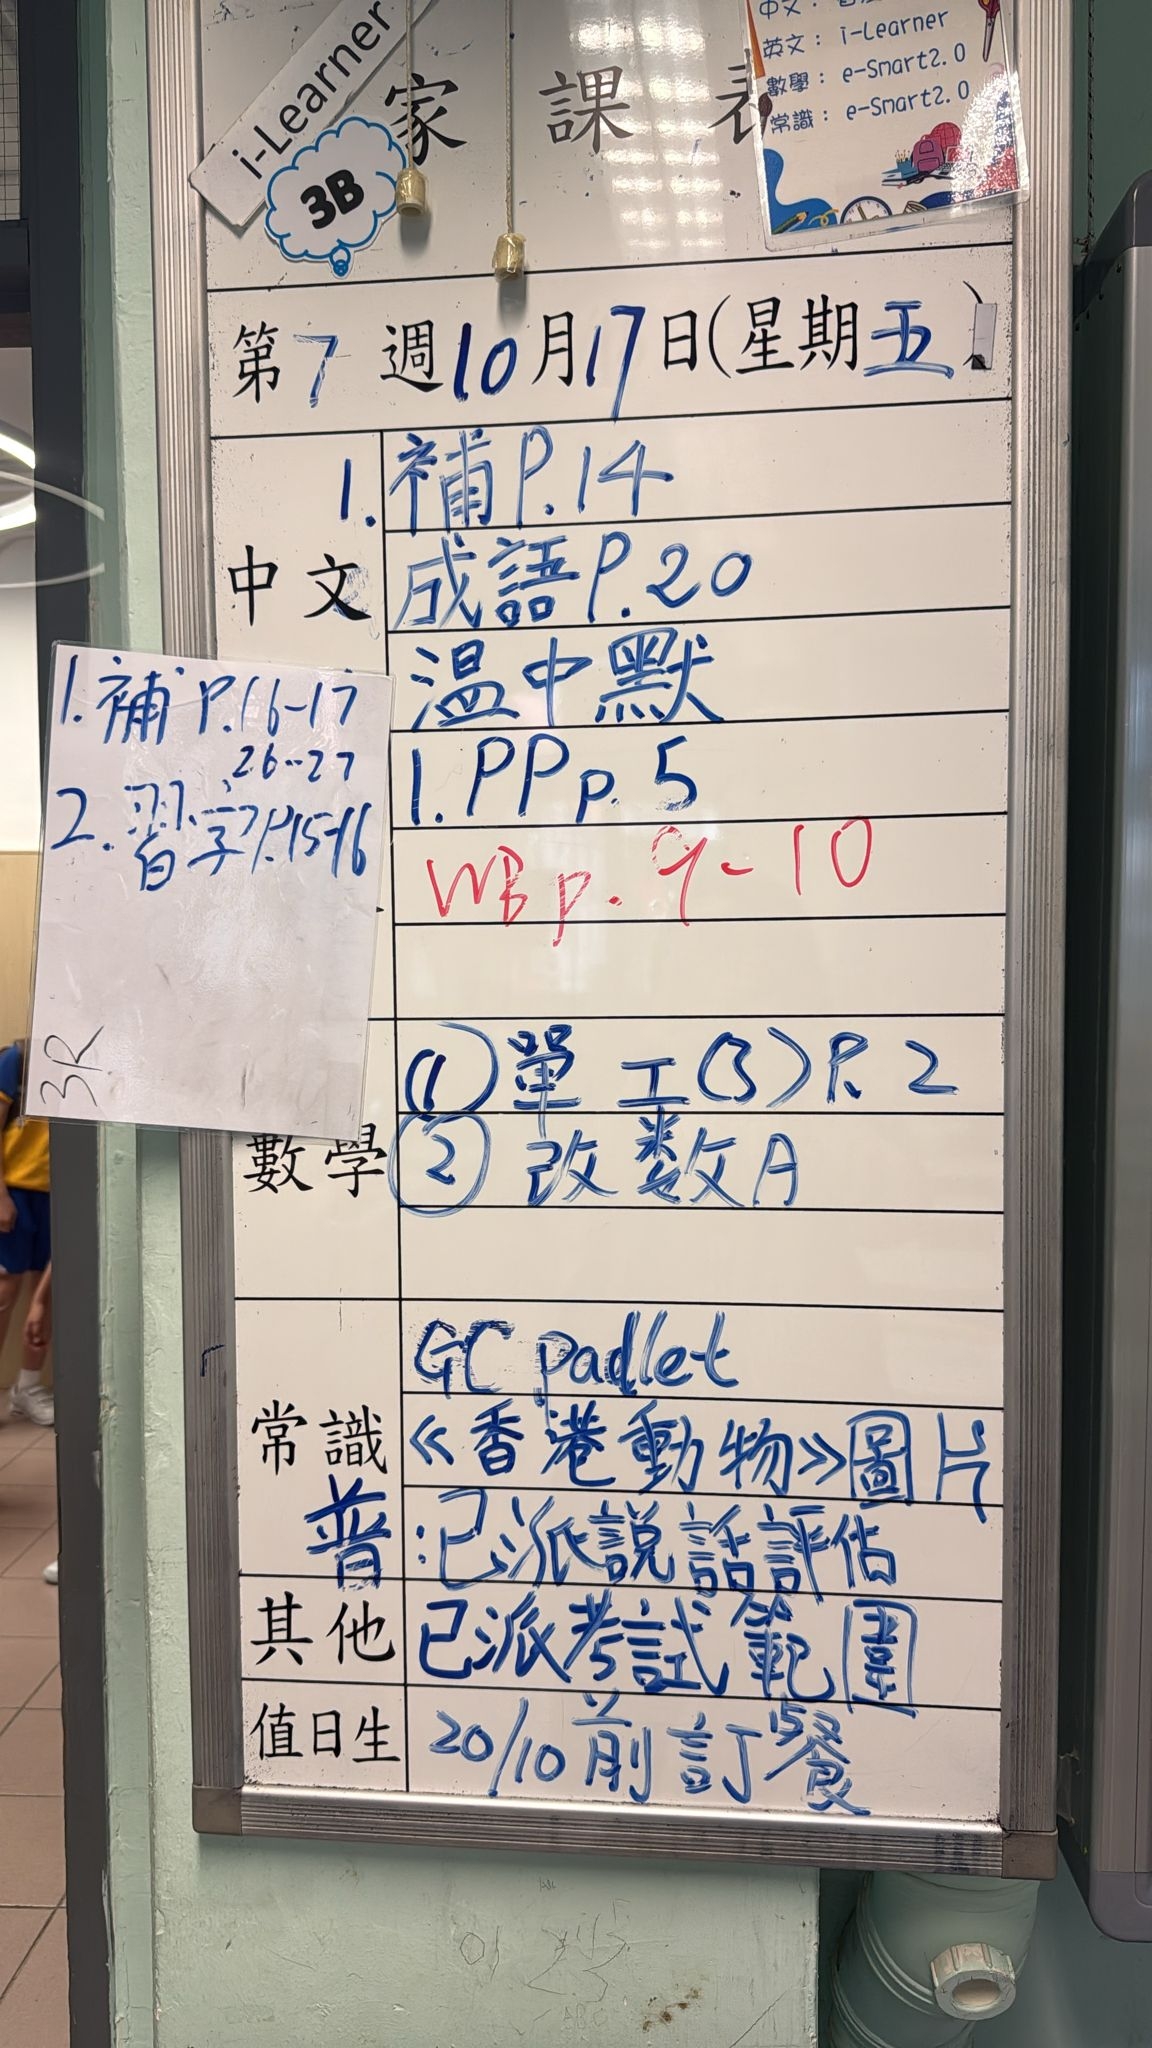 i-Learner
3B
家課表
中文：
英文： i-Learner
數學： e-Smart2.0
常識： e-Smart2.0
第7週10月17日(星期五)
中文
1. 補P.14
成語P.20
溫中默
1.PP p.5
WB p.9-10
1.補P.16-17
26-27
2.習字P.15-16
3R
數學
(1) 單工(3)P.2
② 改数A
常識
GC padlet
《香港動物》圖片
普:已派說話評估
其他
已派考試範圍
值日生
20/10前訂餐